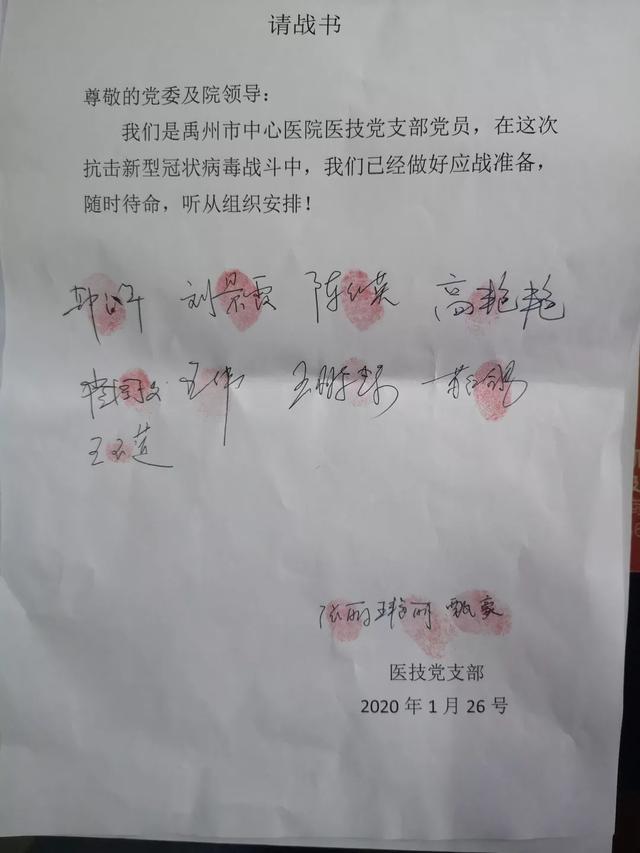 请战书
尊敬的党委及院领导：
我们是禹州市中心医院医技党支部党员，在这次
抗击新型冠状病毒战斗中，我们已经做好应战准备，
随时待命，听从组织安排！
刘景霞 陈红英 高艳艳
王伟
王玉莲
张丽 王艳丽 甄豪
医技党支部
2020 年 1 月 26 号